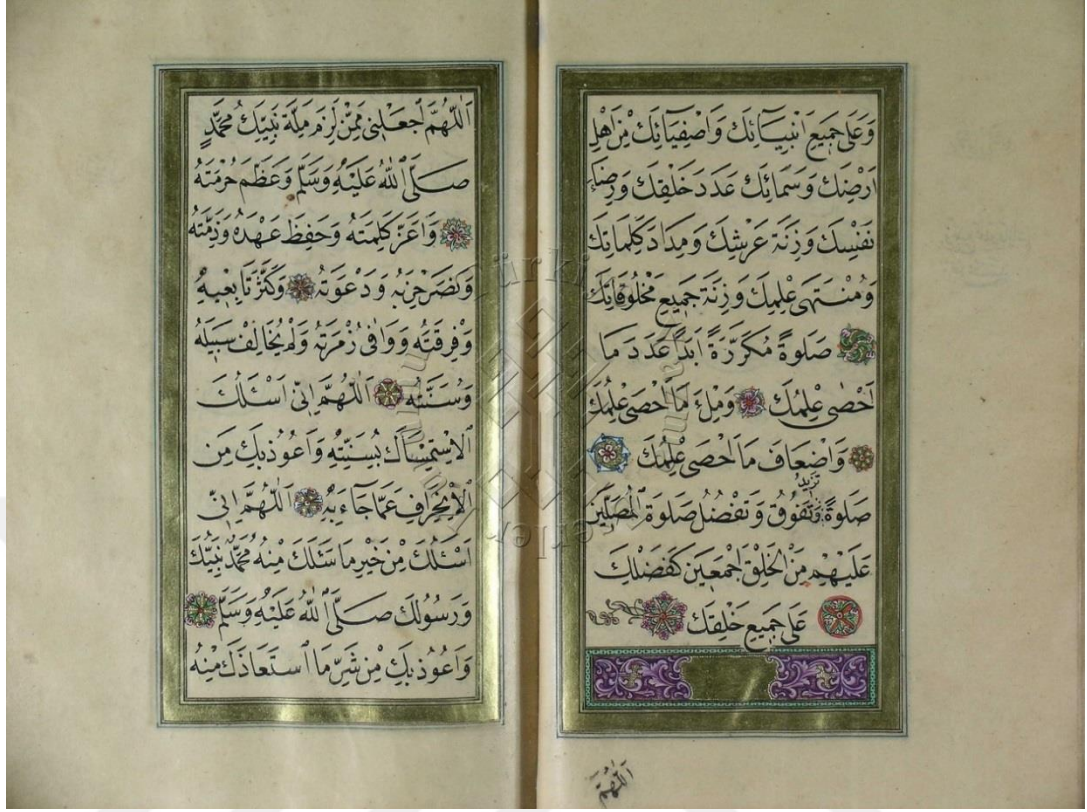 وَعَلٰى جَمِيعِ اَنْبِيَٓائِكَ وَاَصْفِيَٓائِكَ مِنْ اَهْلِ
اَرْضِكَ وَسَمَائِكَ عَدَدَ خَلْقِكَ وَرِضَٓاءَ
نَفْسِكَ وَزِنَةَ عَرْشِكَ وَمِدَادَ كَلِمَاتِكَ
وَمُنْتَهٰى عِلْمِكَ وَزِنَةَ جَمِيعِ مَخْلُوقَاتِكَ
صَلٰوةً مُكَرَّرَةً اَبَدًا عَدَدَ مَا
اَحْصٰى عِلْمُكَ وَمِلْءَ مَا اَحْصٰى عِلْمُكَ
وَاَضْعَافَ مَا اَحْصٰى عِلْمُكَ
صَلٰوةً تَزِيدُ وَتَفُوقُ وَتَفْضُلُ صَلٰوةَ الْمُصَلِّينَ
عَلَيْهِمْ مِنَ الْخَلْقِ اَجْمَعِينَ كَفَضْلِكَ
عَلٰى جَمِيعِ خَلْقِكَ
اَللّٰهُمَّ
اَللّٰهُمَّ اجْعَلْنِى مِمَّنْ لَزِمَ مِلَّةَ نَبِيِّكَ مُحَمَّدٍ
صَلَّى اللّٰهُ عَلَيْهِ وَسَلَّمَ وَعَظَّمَ حُرْمَتَهُ
وَاَعَزَّ كَلِمَتَهُ وَحَفِظَ عَهْدَهُ وَذِمَّتَهُ
وَنَصَرَ حِزْبَهُ وَدَعْوَتَهُ وَكَثَّرَ تَابِعِيهِ
وَفِرْقَتَهُ وَوَافٰى زُمْرَتَهُ وَلَمْ يُخَالِفْ سَبِيلَهُ
وَسُنَّتَهُ اَللّٰهُمَّ اِنِّى اَسْئَلُكَ
الْاِسْتِمْسَاكَ بِسُنَّتِهِ وَاَعُوذُ بِكَ مِنَ
الْاِنْحِرَافِ عَمَّا جَٓاءَ بِهِ اَللّٰهُمَّ اِنِّى
اَسْئَلُكَ مِنْ خَيْرِ مَا سَئَلَكَ مِنْهُ مُحَمَّدٌ نَبِيُّكَ
وَرَسُولُكَ صَلَّى اللّٰهُ عَلَيْهِ وَسَلَّمَ
وَاَعُوذُ بِكَ مِنْ شَرِّ مَا اسْتَعَاذَكَ مِنْهُ